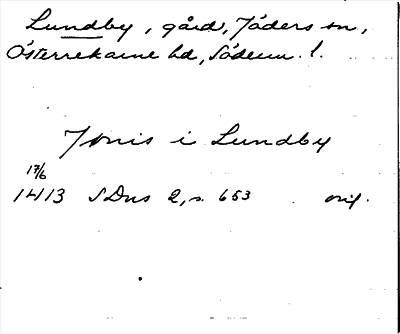 Lundby, gård, Jäders sn,
Österrekarne hd, Söderm. l.
Jönis i Lundby
17/6
1413 SDns 2, s. 653 orig.